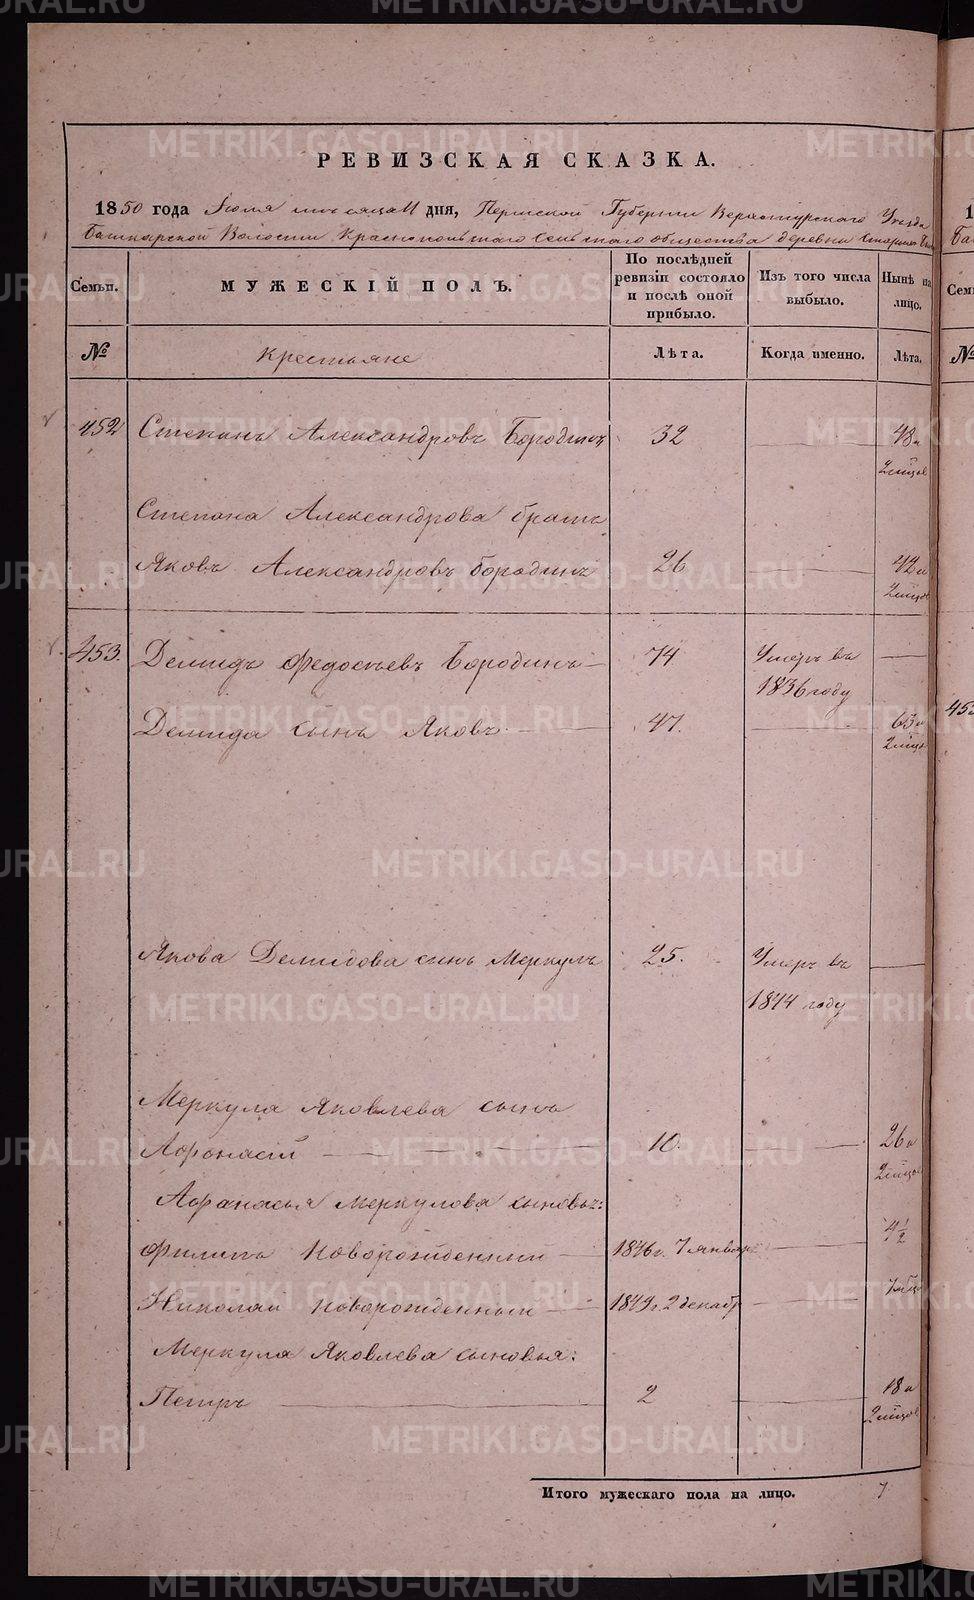 РЕВИЗСКАЯ СКАЗКА.
1850 года Июля месяца 11 дня, Пермской Губернии Верхотурского Уезда
Башкарской Волости Краснопольского Сельского общества деревни
Семьи. МУЖЕСКІЙ ПОЛЪ. По послѣдней ревизіи состояло и послѣ оной прибыло. Изъ того числа выбыло. Нынѣ на лицо.
№ Крестьяне Лѣта. Когда именно. Лѣта.
452 Степанъ Александровъ Бородинъ 32 48 и
2 мѣсяц
Степана Александрова братъ
Яковъ Александровъ Бородинъ 26 42 и
2 мѣсяц
453. Демидъ Федосѣевъ Бородинъ 74 Умеръ въ
1836 году
Демида сынъ Яковъ 47. 63 и
2 мѣсяц
Якова Демидова сынъ Меркулъ 25. Умеръ въ
1844 году
Меркула Яковлева сынъ
Афонасій 10. 26 и
2 мѣсяц
Афанасья Меркулова сыновья:
Филипъ Новорожденный 1846 г. 7 январ 4 1/2
Николай новорожденный 1849 г. 2 декабр 7 мѣсц
Меркула Яковлева сыновья:
Петръ 2 18 и
2 мѣсяц
Итого мужескаго пола на лицо. 7
1
Ба
Сем
№
453
METRIKI.GASO-URAL.RU